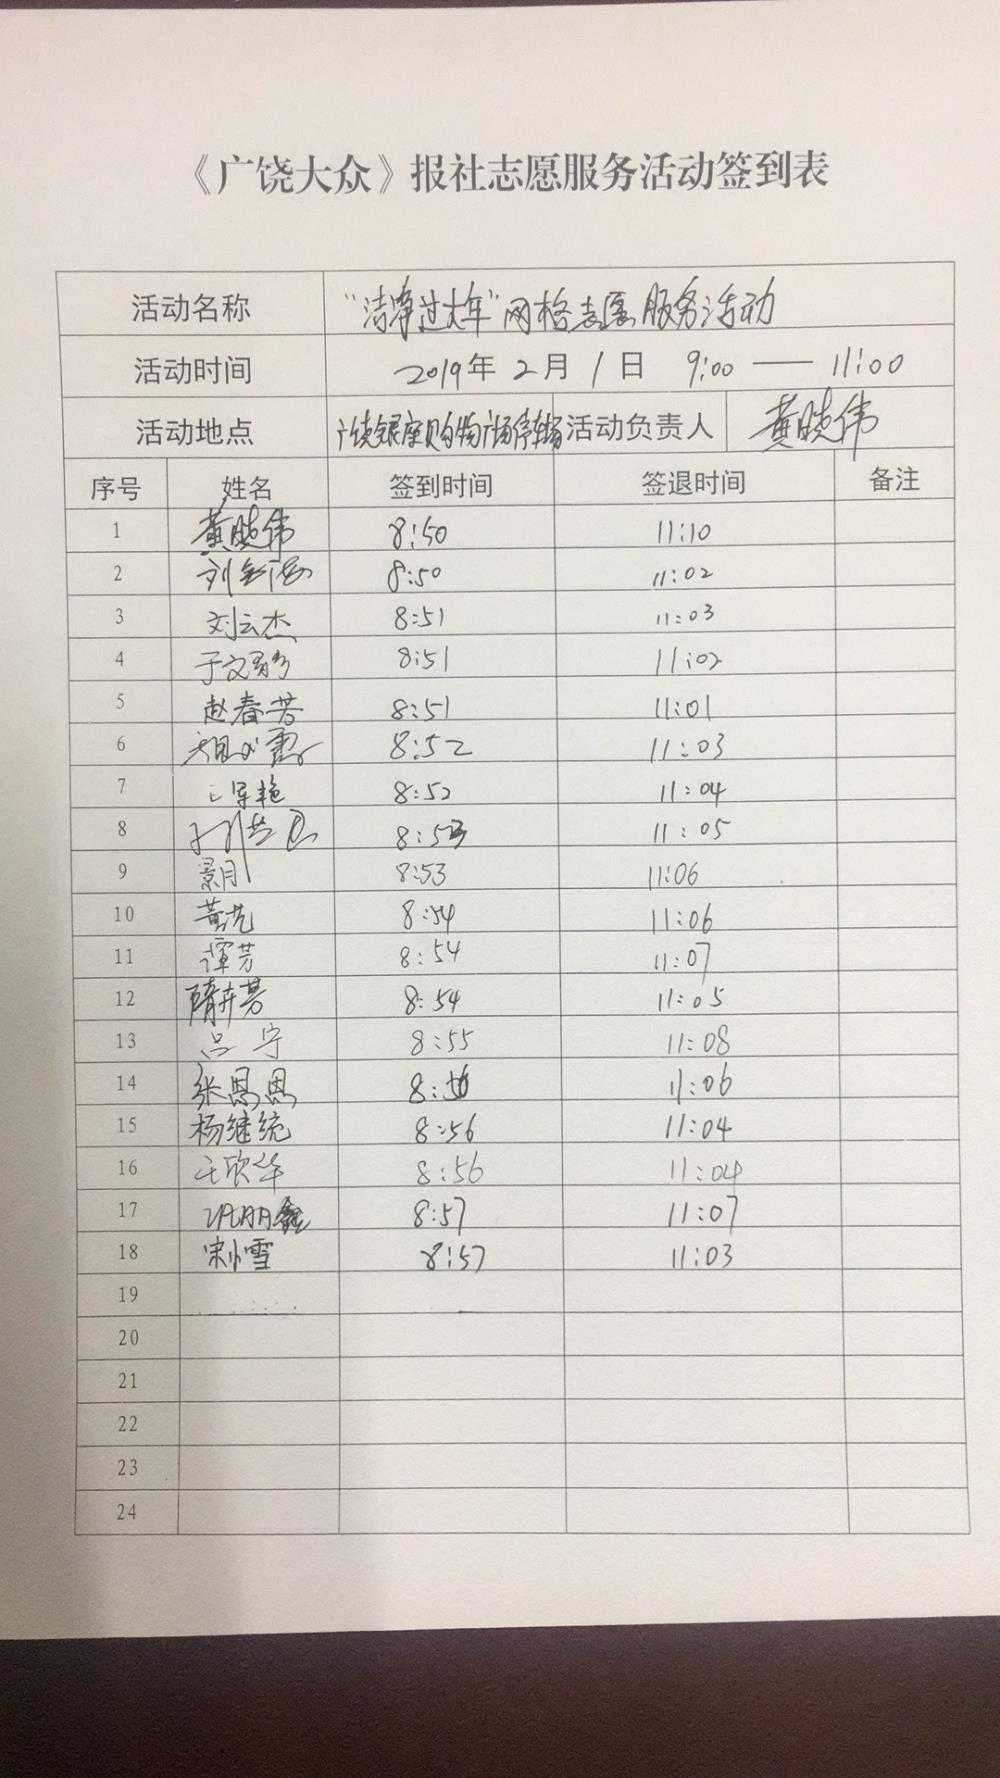 《广饶大众》报社志愿服务活动签到表
活动名称 “洁净过大年”网格志愿服务活动
活动时间 2019年2月1日 9:00 —— 11:00
活动地点 广饶银座购物广场停车场 活动负责人 黄晓伟
序号 姓名 签到时间 签退时间 备注
1 黄晓伟 8:50 11:10
2 刘 8:50 11:02
3 刘云杰 8:51 11:03
4 于文 8:51 11:02
5 赵春芳 8:51 11:01
6 8:52 11:03
7 艳 8:52 11:04
8 8:53 11:05
9 景月 8:53 11:06
10 黄 8:54 11:06
11 谭芳 8:54 11:07
12 隋 8:54 11:05
13 吕宁 8:55 11:08
14 张恩恩 8: 11:06
15 杨继统 8:56 11:04
16 王欣华 8:56 11:04
17 鑫 8:57 11:07
18 宋小雪 8:57 11:03
19
20
21
22
23
24